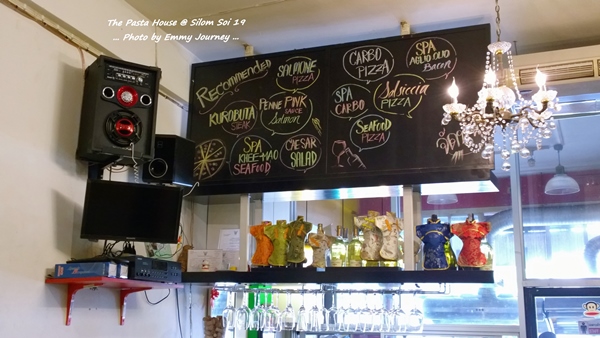 The Pasta House @ Silom Soi 19
... Photo by Emmy Journey ...
Recommended
SALMONE
PIZZA
KUROBUTA
STEAK
PENNE PINK
SAUCE
Salmon
SPA
KHEE-MAO
SEAFOOD
CAESAR
SALAD
CARBO
PIZZA
SPA
AGLIO OLIO
Bacon
SPA
CARBO
Salsiccia
PIZZA
SEAFOOD
PIZZA